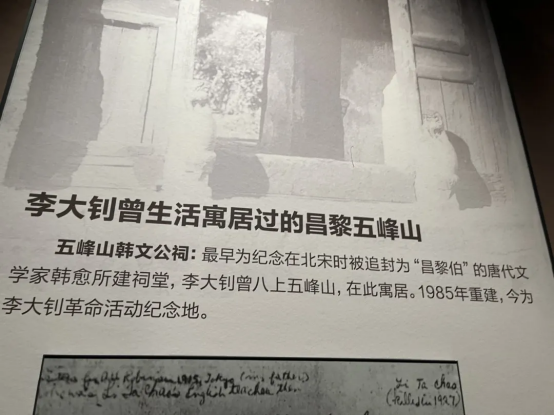 李大钊曾生活寓居过的昌黎五峰山
五峰山韩文公祠：最早为纪念在北宋时被追封为“昌黎伯”的唐代文
学家韩愈所建祠堂，李大钊曾八上五峰山，在此寓居。1985年重建，今为
李大钊革命活动纪念地。
Li Ta chao